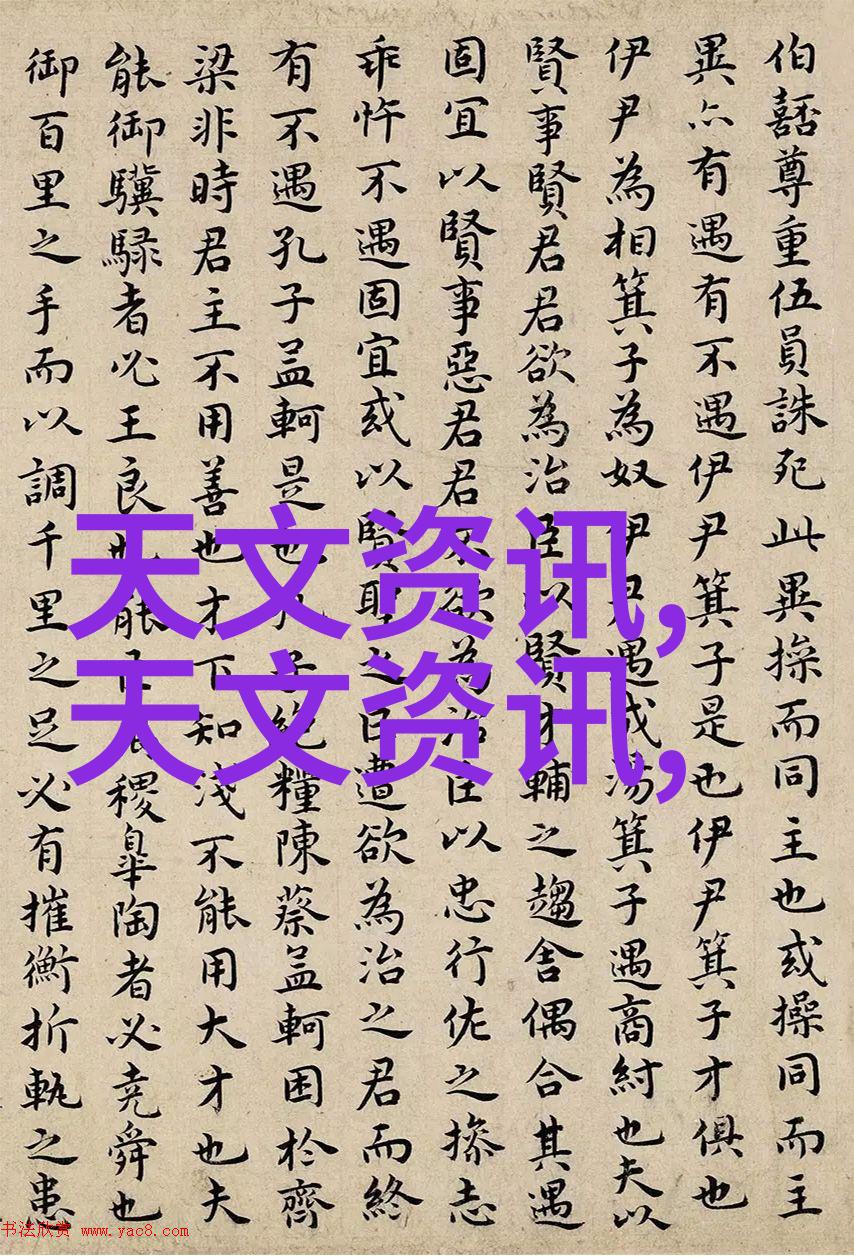 伯嚭尊重伍員誅死此異操而同主也或操同而主
異亦有遇有不遇伊尹箕子是也伊尹箕子才俱也
伊尹為相箕子為奴伊尹遇成湯箕子遇商紂也夫以
賢事賢君君欲為治臣以賢才輔之趨舍偶合其遇
固宜以賢事惡君君不欲為治臣以忠行佐之操志
乖忤不遇固宜或以賢聖之臣遭欲為治之君而終
有不遇孔子孟軻是也孔子絕糧陳蔡孟軻困於齊
梁非時君主不用善也才下知淺不能用大才也夫
能御驥騄者必王良也能臣禹稷皋陶者必堯舜也
御百里之手而以調千里之足必有摧衡折軛之患
天文资讯,
天文资讯,
书法欣赏 www.yac8.com